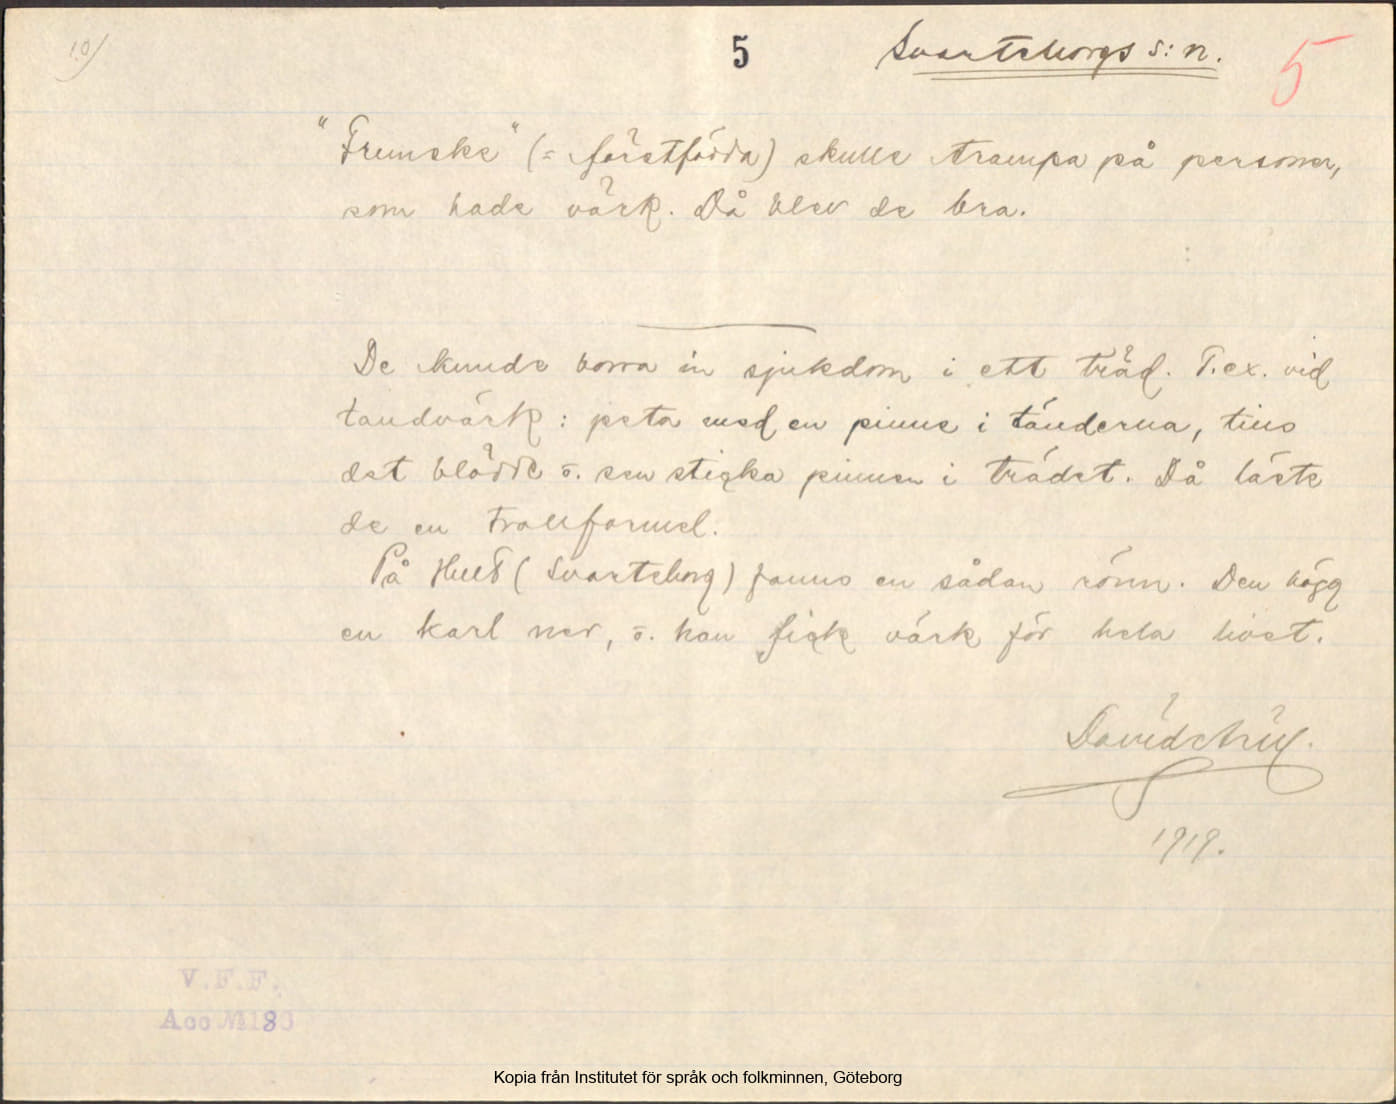 10)
5
Svarteborgs s:n.
5
"Fremske" (= förstfödda) skulle trampa på personer,
som hade värk. Då blev de bra.
De kunde borra in sjukdom i ett träd. T.ex. vid
tandvärk: peta med en pinne i tänderna, tills
det blödde o. sen sticka pinnen i trädet. Då läste
de en trollformel.
På Hult (Svarteborg) fanns en sådan rönn. Den högg
en karl ner, o. han fick värk för hela livet.
David Arill.
1919.
V.F.F.
Acc № 180
Kopia från Institutet för språk och folkminnen, Göteborg